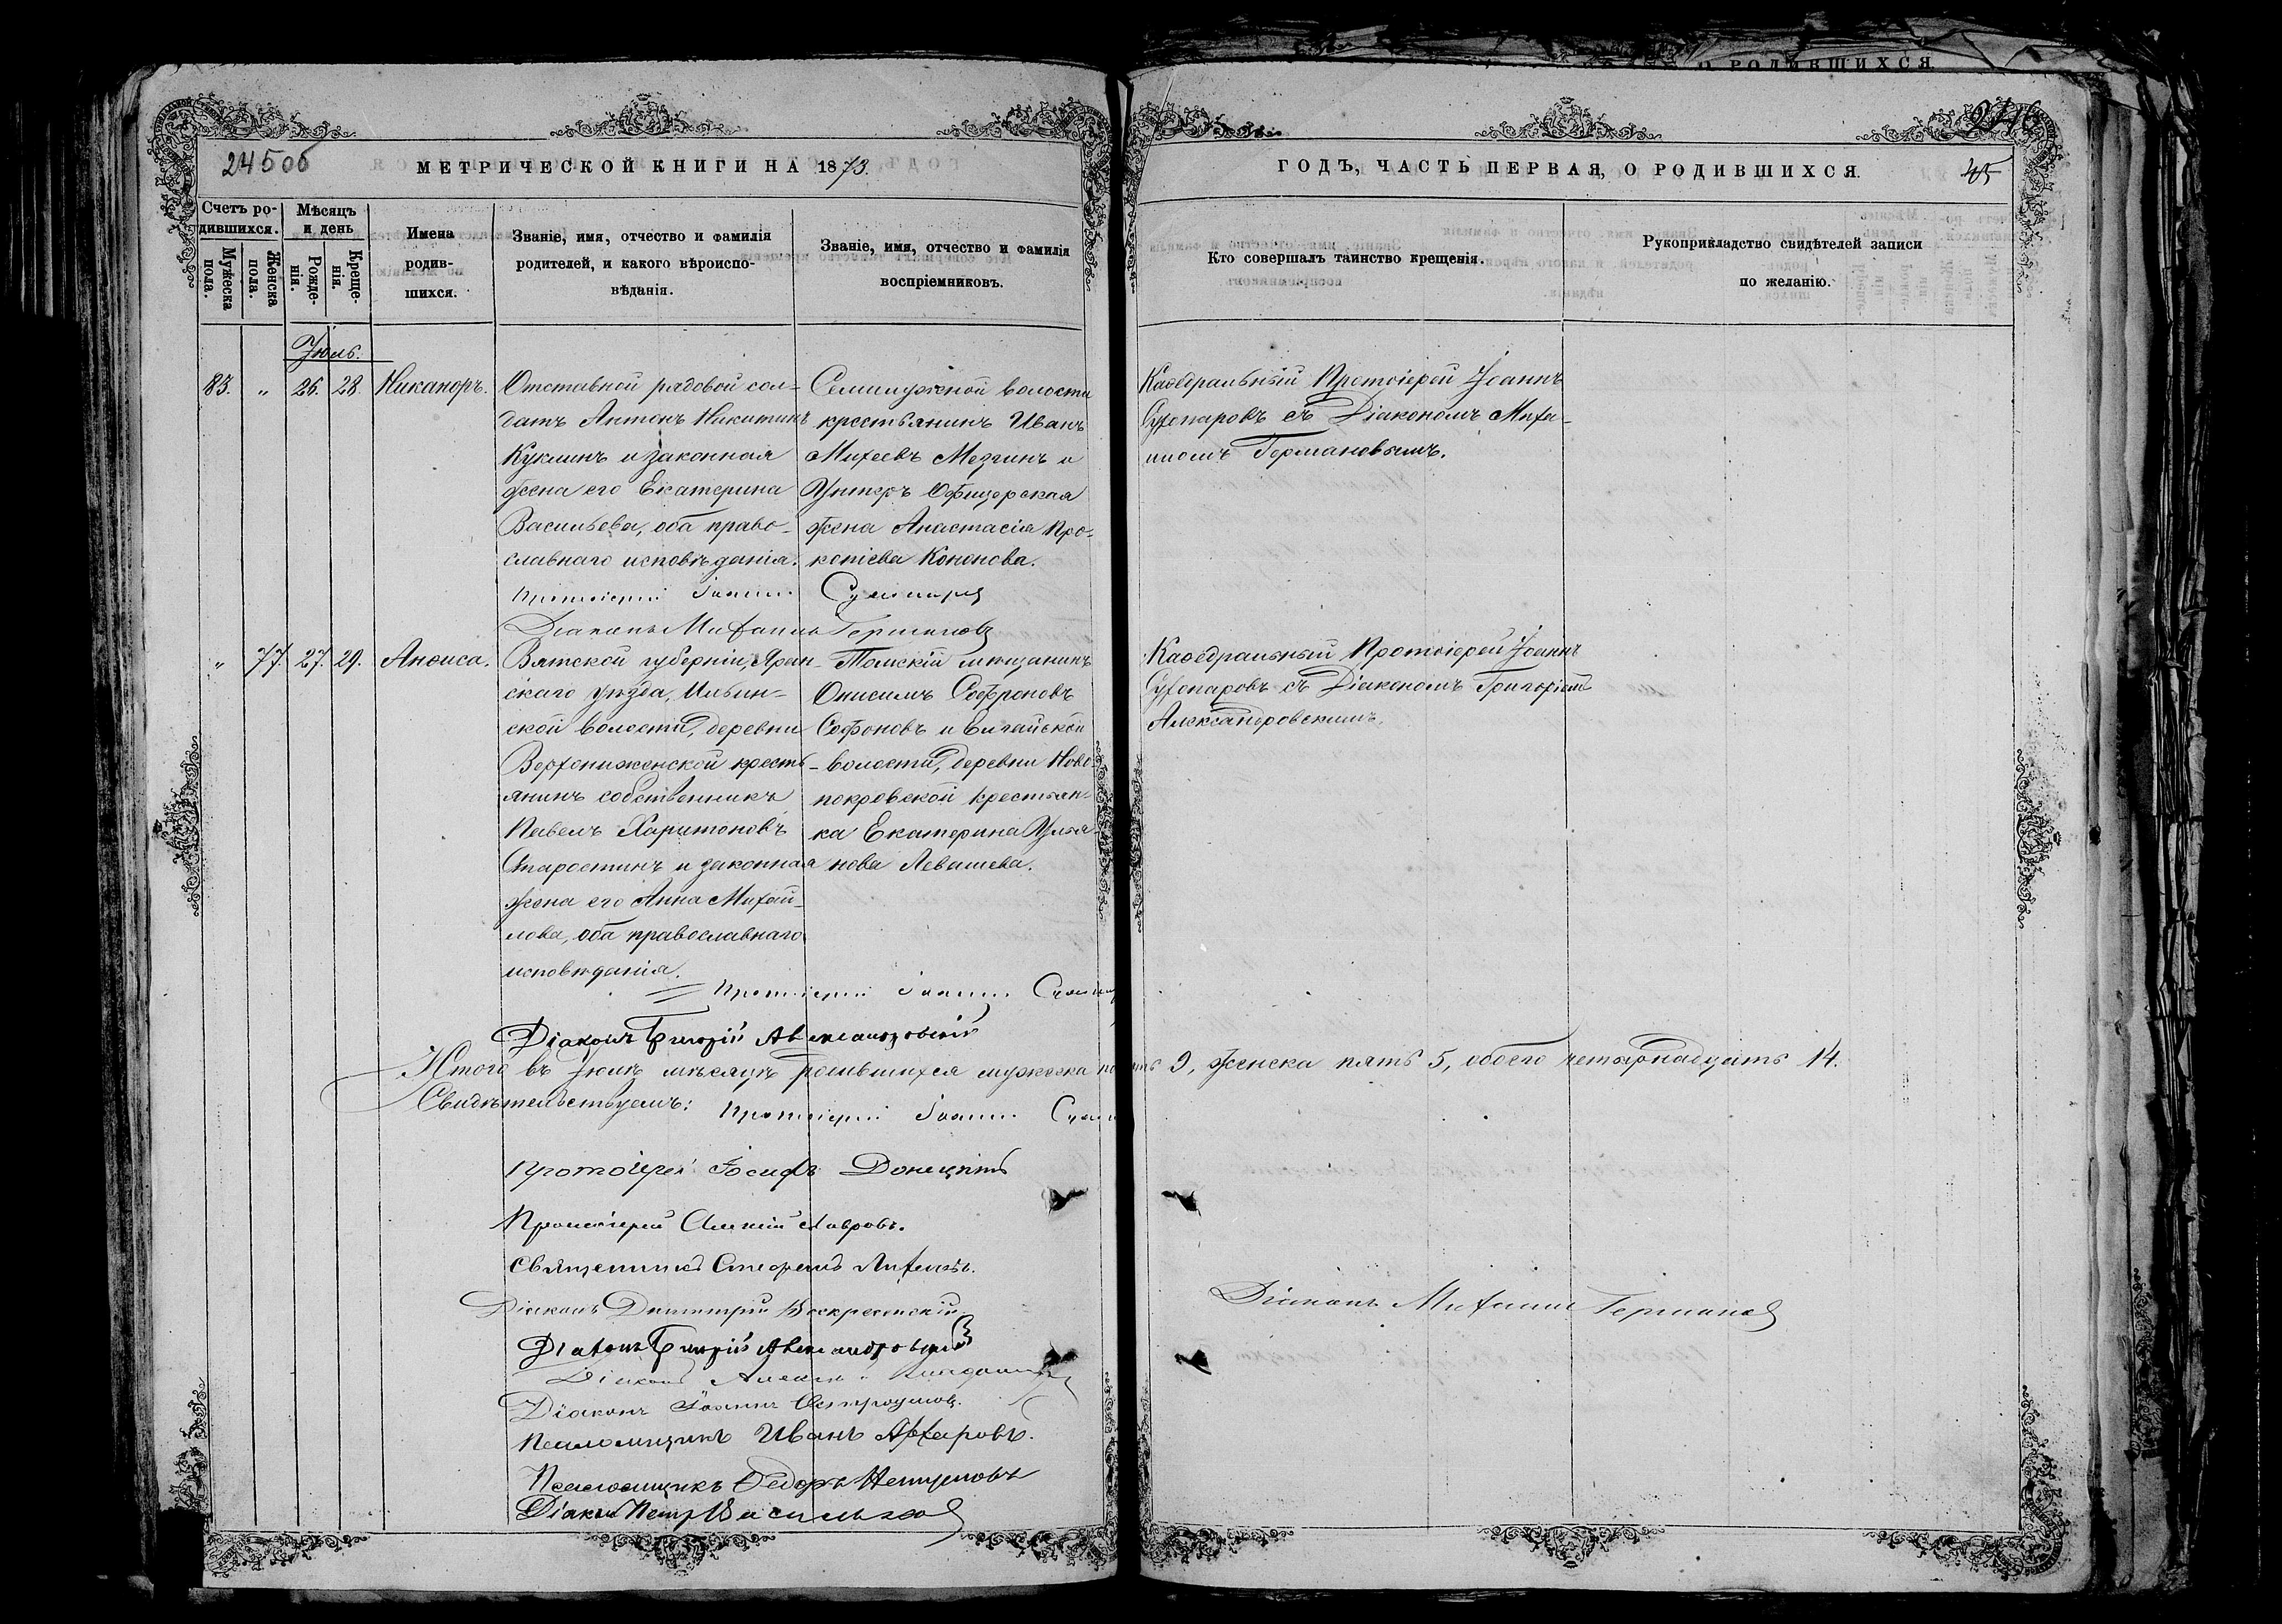 О РОДИВШИХСЯ
245об
246
МЕТРИЧЕСКОЙ КНИГИ НА 1873.
ГОДЪ, ЧАСТЬ ПЕРВАЯ, О РОДИВШИХСЯ.
45
Счетъ ро-
дившихся.
Мужеска
пола.
Женска
пола.
Мѣсяцъ
и день
Рожде-
нія.
Креще-
нія.
Имена
родив-
шихся.
Званіе, имя, отчество и фамилія
родителей, и какого вѣроиспо-
вѣданія.
Званіе, имя, отчество и фамилія
воспріемниковъ.
Кто совершалъ таинство крещенія.
Рукоприкладство свидѣтелей записи
по желанію.
Іюль.
83. „ 26. 28. Никаноръ.
Отставной рядовой сол-
датъ Антонъ Никитинъ
Куклинъ и законная
жена его Екатерина
Васильева, оба право-
славнаго исповѣданія.
Семилужной волости
крестьянинъ Иванъ
Михеевъ Мезгинъ и
Унтеръ Офицерская
жена Анастасія Про-
копіева Кононова.
Каѳедральный Протоіерей Іоаннъ
Сухопаровъ съ Діакономъ Миха-
иломъ Германовымъ.
Протоіерей Іоаннъ
Діаконъ Михаилъ Германовъ
„ 77. 27. 29. Анѳиса.
Вятской губерніи, Яран-
скаго уѣзда, Ильин-
ской волости, деревни
Верхониженской кресть-
янинъ собственникъ
Павелъ Харитоновъ
Старостинъ и законная
жена его Анна Михай-
лова, оба православнаго
исповѣданія.
Томскій мѣщанинъ
Онисимъ Софроновъ
Софоновъ и
волости, деревни Ново-
покровской крестьян-
ка Екатерина Улья-
нова Левашева.
Каѳедральный Протоіерей Іоаннъ
Сухопаровъ съ Діакономъ Григоріемъ
Александровскимъ.
Протоіерей Іоаннъ
Діаконъ Григорій Александровскій
Итого въ Іюлѣ мѣсяцѣ родившихся мужеска 9, женска пять 5, обоего четырнадцать 14.
Свидѣтельствуемъ: Протоіерей Іоаннъ
Протоіерей Іосифъ Донецкій
Протоіерей Алексій Лавровъ.
Священникъ Стефанъ
Діаконъ Димитрій Воскресенскій.
Діаконъ Михаилъ Германовъ
Діаконъ Григорій Александровскій
Діаконъ
Діаконъ Іоаннъ
Псаломщикъ Иванъ
Псаломщикъ Ѳедоръ
Діаконъ Петръ